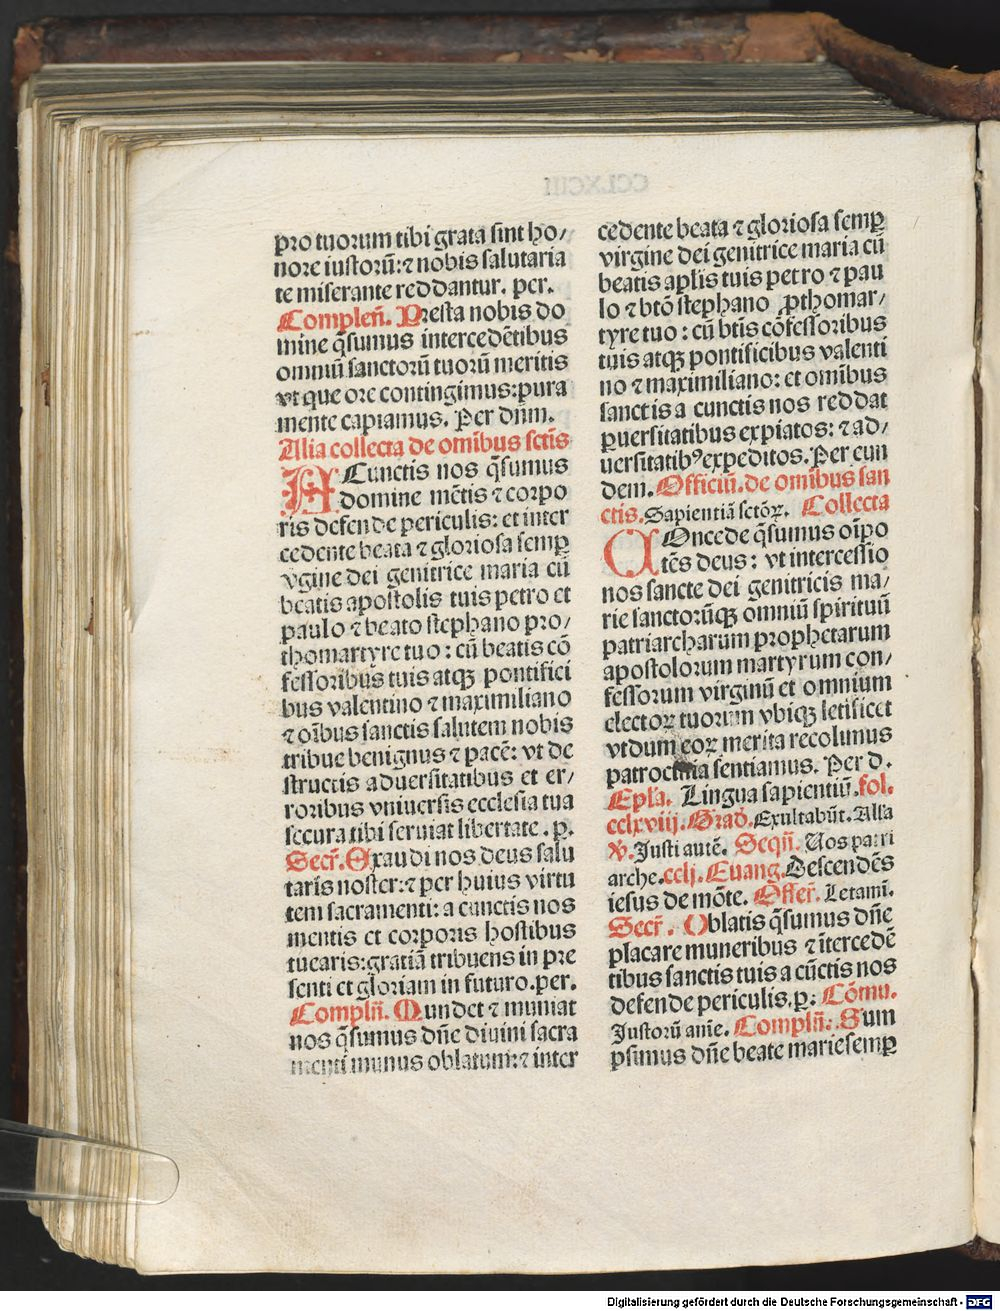 pro tuorum tibi grata sint ho/
nore iustorū:⁊ nobis salutaria
te miserante reddantur. per.
Compleñ. Presta nobis do
mine q̄sumus intercedētibus
omniū sanctorū tuorū meritis
vt que ore contingimus:pura
mente capiamus. Per dn̄m.
Alia collecta de omībus sctīs
A Cunctis nos q̄sumus
domine mētis ⁊ corpo
ris defende periculis: et inter
cedente beata ⁊ gloriosa semꝑ
v̄gine dei genitrice maria cū
beatis apostolis tuis petro et
paulo ⁊ beato stephano pro/
thomartyre tuo : cū beatis cō
fessoribus tuis atqꝫ pontifici
bus valentino ⁊ maximiliano
⁊ oībus sanctis salutem nobis
tribue benignus ⁊ pacē: vt de
structis aduersitatibus et er/
roribus vniuersis ecclesia tua
secura tibi seruiat libertate . p.
Secr̄. Exaudi nos deus salu
taris noster:⁊ per huius virtu
tem sacramenti: a cunctis nos
mentis et corporis hostibus
tuearis:gratiā tribuens in pre
senti et gloriam in futuro.per.
Complñ. Mundet ⁊ muniat
nos q̄sumus dn̄e diuini sacra
menti munus oblatum:⁊ inter
cedente beata ⁊ gloriosa semꝑ
virgine dei genitrice maria cū
beatis aplis tuis petro ⁊ pau
lo ⁊ btō stephano ꝓthomar/
tyre tuo : cū btis cōfessoribus
tuis atqꝫ pontificibus valenti
no ⁊ maximiliano: et omībus
sanctis a cunctis nos reddat
ꝑuersitatibus expiatos: ⁊ ad/
uersitatibꝰ expeditos. Per eun
dem. Officiū. de omībus san
ctis. Sapientiā sctōꝝ. Collecta
COncede q̄sumus oīpo
tēs deus : vt intercessio
nos sancte dei genitricis ma/
rie sanctorūqꝫ omniū spirituū
patriarcharum prophetarum
apostolorum martyrum con/
fessorum virginū et omnium
electoꝝ tuorum vbiqꝫ letificet
vt dum eoꝝ merita recolimus
patrocinia sentiamus. Per d.
Epl'a. Lingua sapientiū. fol.
cclxviij. Grad̄. Exultabūt. Alla
v̄. Justi autē. Seqñ. Uos patri
arche. cclj. Euang. Descendēs
iesus de mōte. Offer̄. Letamī.
Secr̄. Oblatis q̄sumus dn̄e
placare muneribus ⁊ ītercedē
tibus sanctis tuis a cūctis nos
defende periculis. p: Cōmu.
Justorū anīe. Complñ: Sum
psimus dn̄e beate marie semꝑ
Digitalisierung gefördert durch die Deutsche Forschungsgemeinschaft - DFG